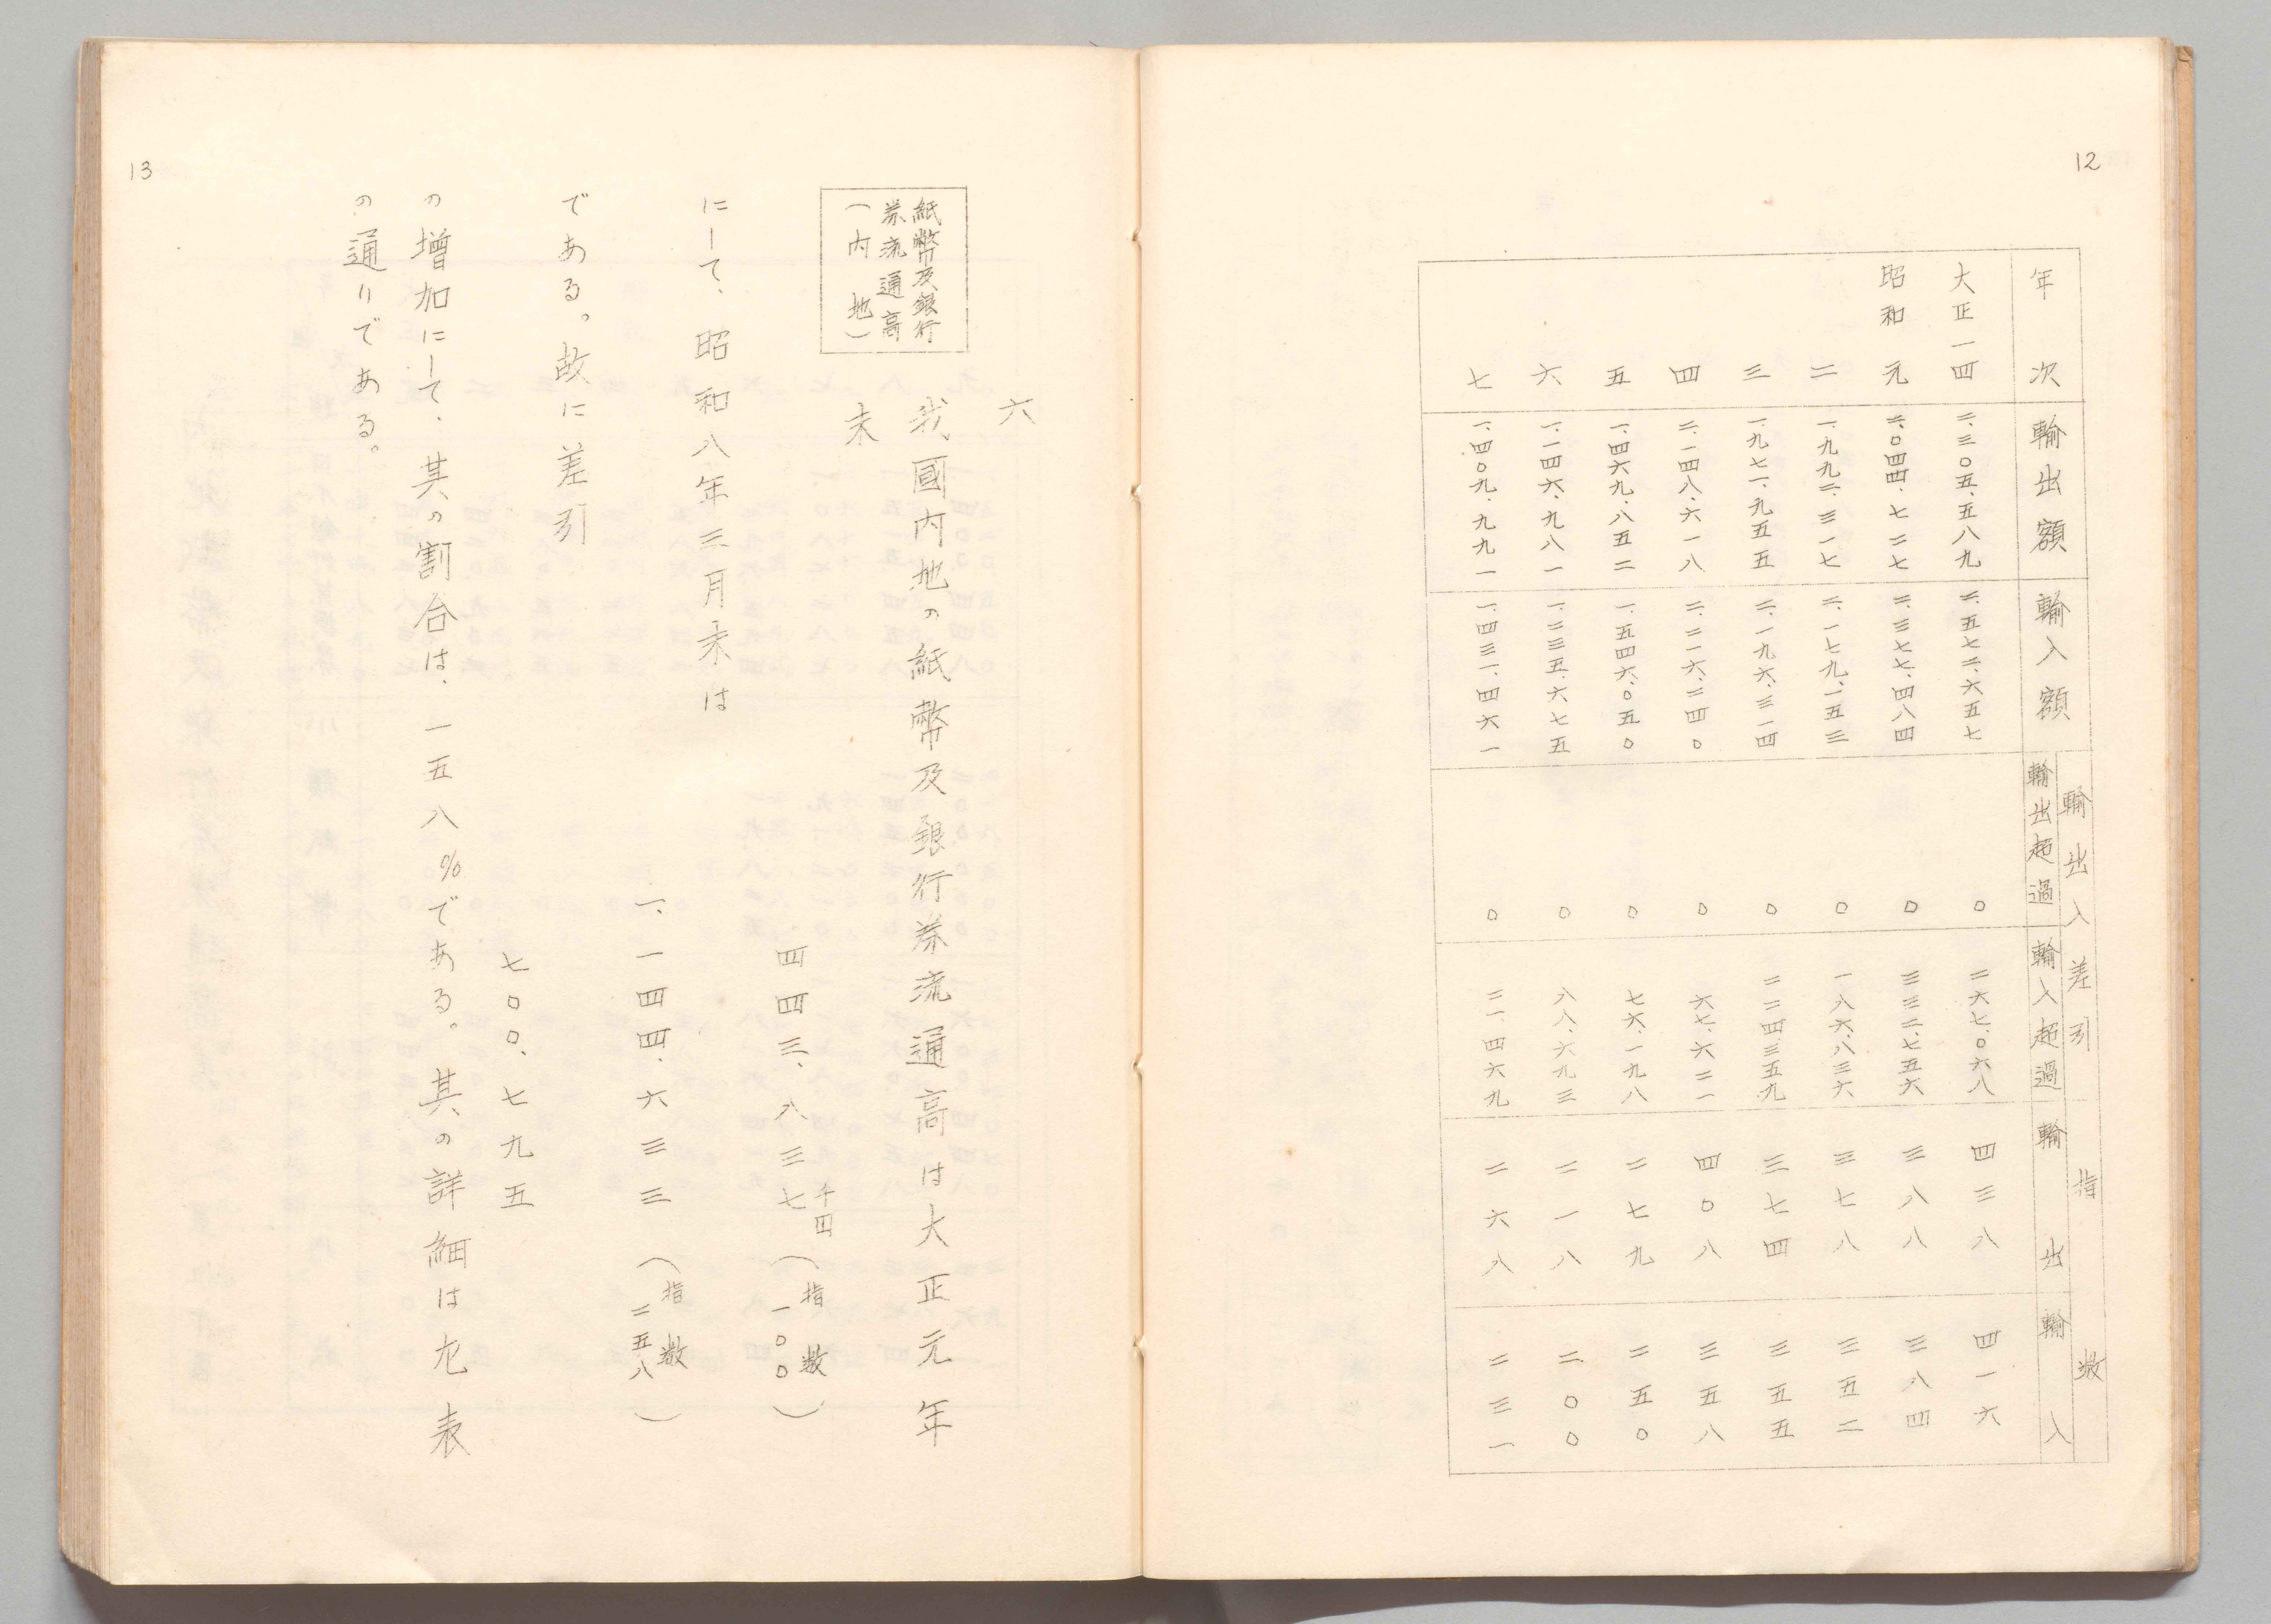 12
年次 輸出額 輸入額 輸出入差引 指数
輸出超過 輸入超過 輸出 輸入
大正一四 二、三〇五、五八九 二、五七二、六五七 〇 二六七、〇六八 四三八 四一六
昭和元 二、〇四四、七二七 二、三七七、四八四 〇 三三二、七五六 三八八 三八四
二 一、九九二、三一七 二、一七九、一五三 〇 一八六、八三六 三七八 三五二
三 一、九七一、九五五 二、一九六、三一四 〇 二二四、三五九 三七四 三五五
四 二、一四八、六一八 二、二一六、二四〇 〇 六七、六二一 四〇八 三五八
五 一、四六九、八五二 一、五四六、〇五〇 〇 七六、一九八 二七九 二五〇
六 一、一四六、九八一 一、二三五、六七五 〇 八八、六九三 二一八 二〇〇
七 一、四〇九、九九一 一、四三一、四六一 〇 二一、四六九 二六八 二三一
13
六
紙幣及銀行
券流通高
（内地）
我國内地の紙幣及銀行券流通高は大正元年
末
四四三、八三七千円（指数一〇〇）
にして、昭和八年三月末は
一、一四四、六三三（指数二五八）
である。故に差引
七〇〇、七九五
の増加にして、其の割合は、一五八%である。其の詳細は左表
の通りである。